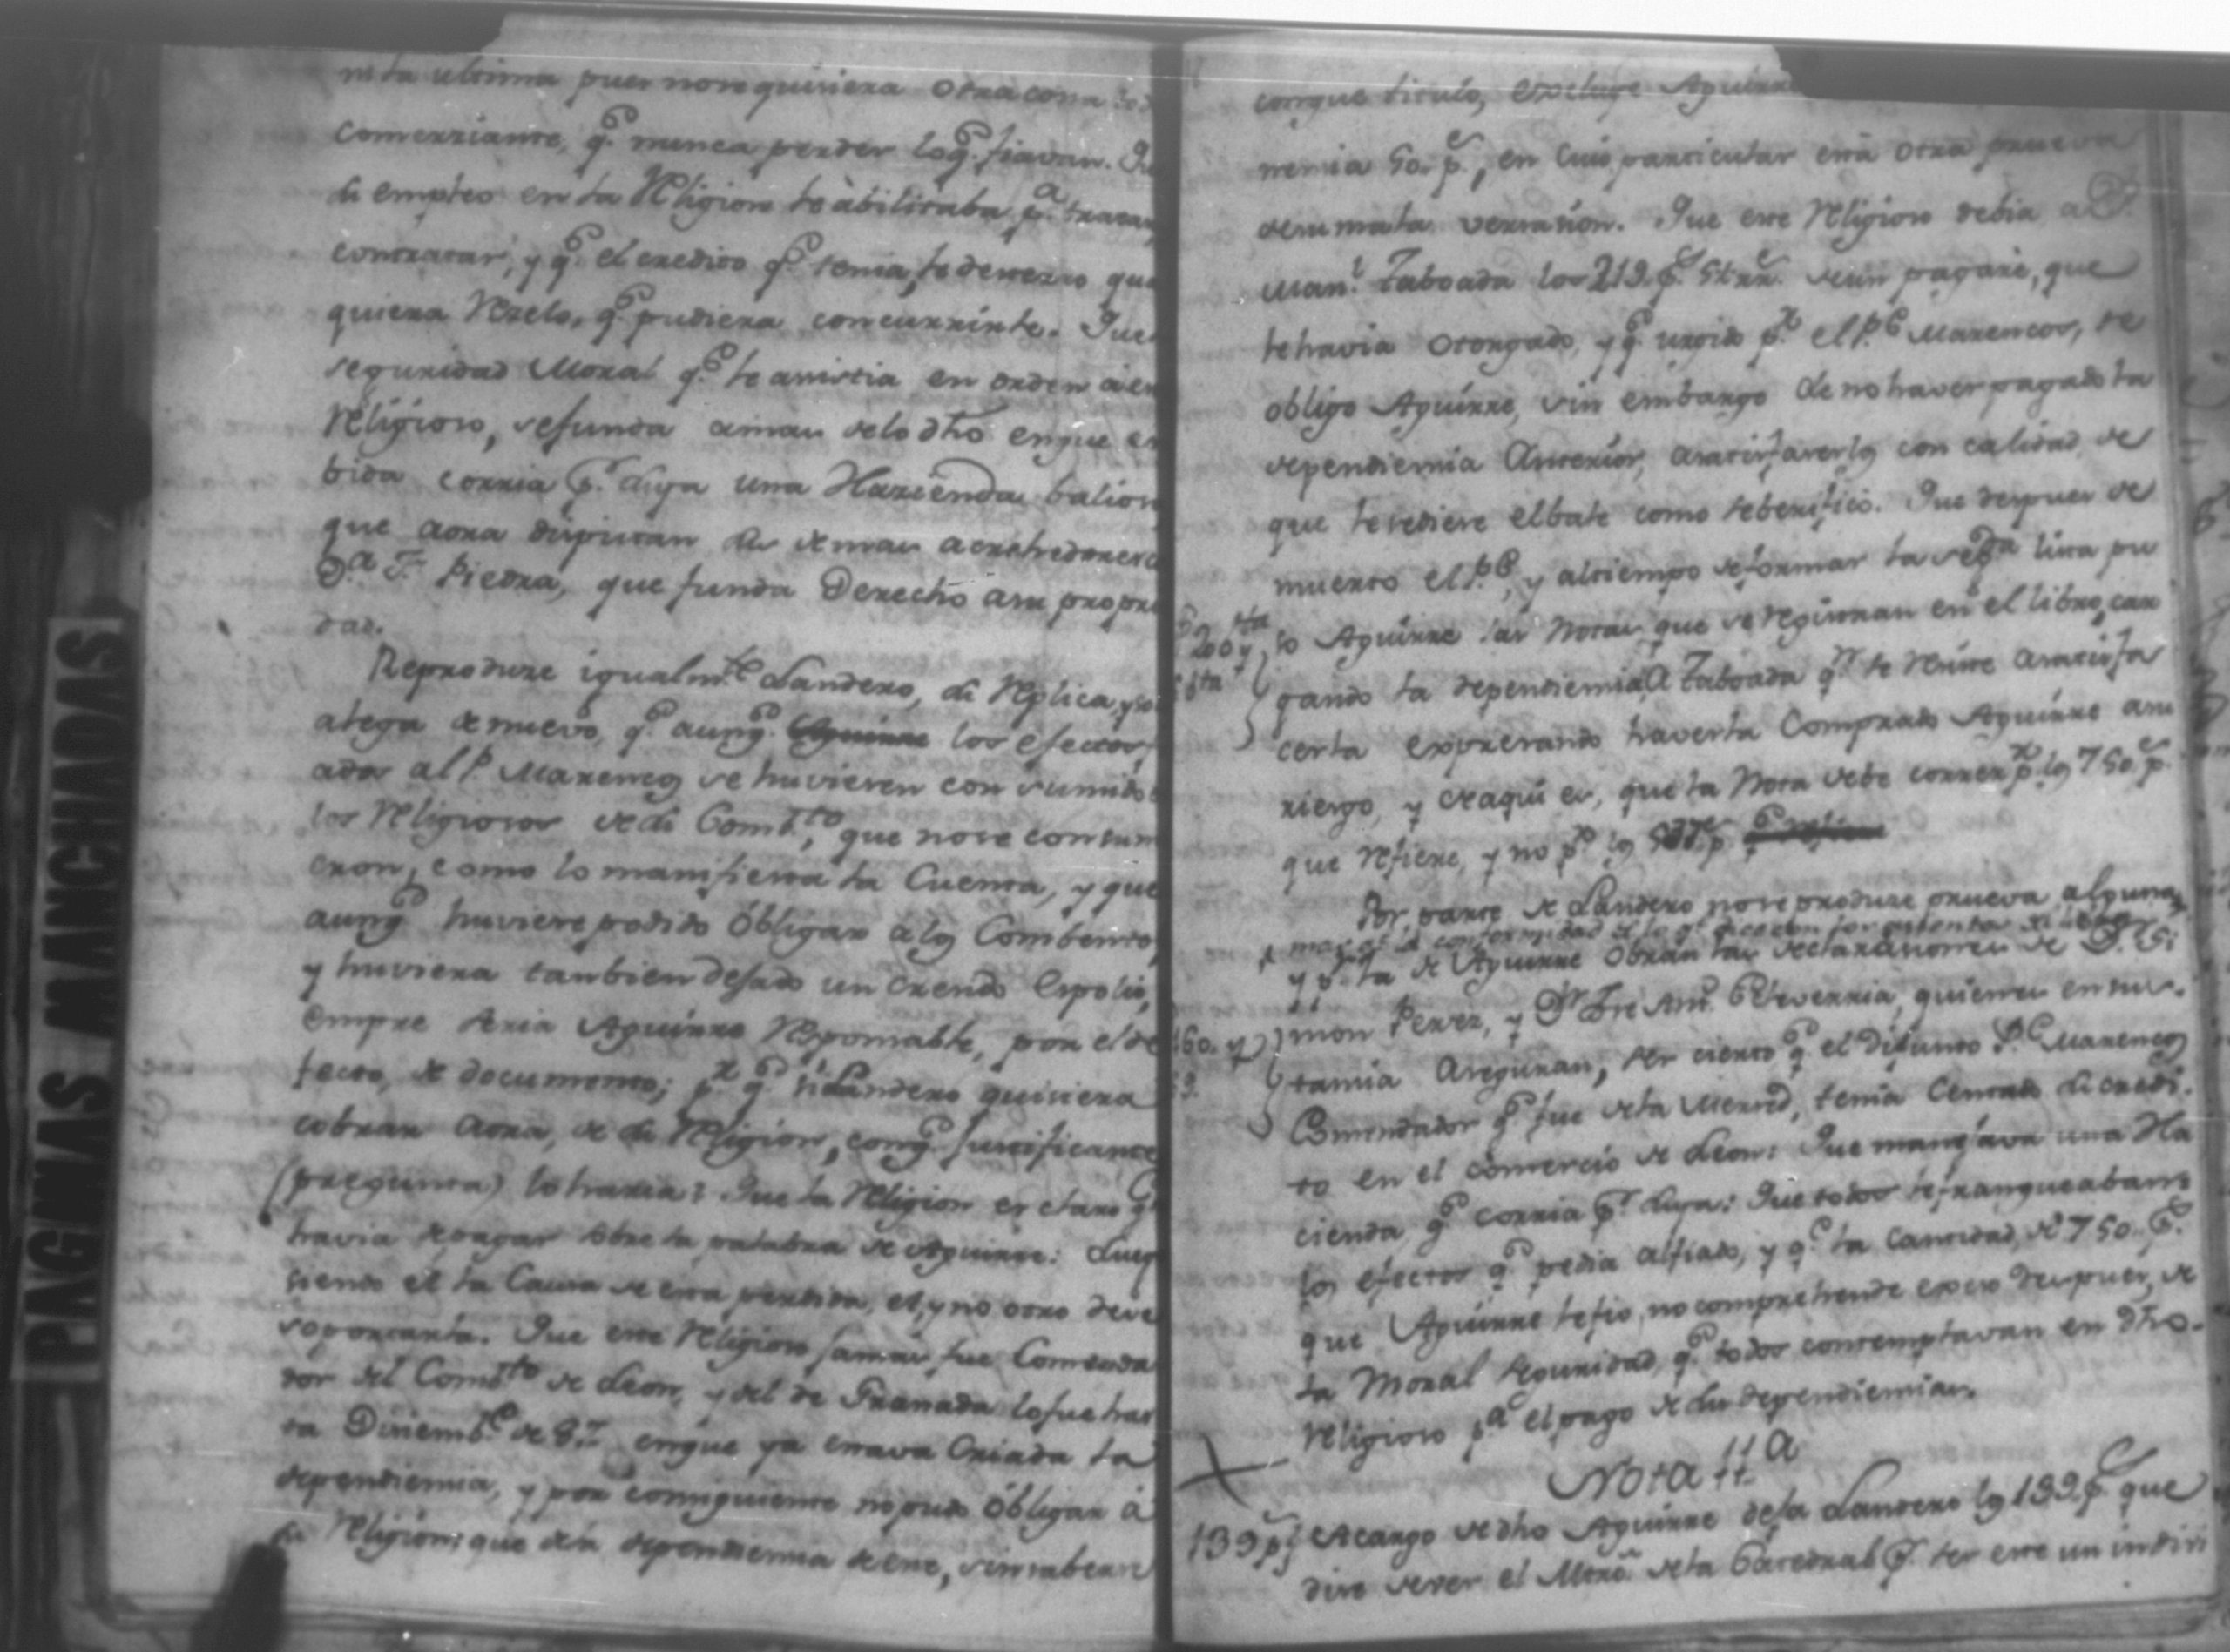 comerziante, q.e nunca perder lo q.e fiavan. Que
su empleo en la Religion le abilitaba p.a tratar,
contratar, y q.e el credito q.e tenia, le desterro qua
quiera Rezelo, q.e pudiera concurrirle. Que
seguridad Moral q.e le asistia en orden a este
Religioso, se funda amas de lo dho en que en
bida corria p.r suya una Hazienda baliosa
que aora disputan sus demas acrehedores a
D.a T. Piedra, que funda Derecho a su propie
dad.
Reproduze igualm.te Landero, su Replica, y so
alega de nuevo, q.e aunq.e los efectos,
ados al P. Marencos se huviesen con sumido
los Religiosos de su Comb.to, que no se consum
eron, como lo manifiesta la Cuenta, y que
aunq.e huviese podido obligar a los Combentos,
y huviera tambien dejado un crecido Espolio,
empre seria Aguirre Responsable, por el de
fecto, de documento; p.r q.e si Landero quisiera
cobrar aora, de su Religion, conq.e Justificante
(pregunta) lo haria? Que la Religion es claro q.e
havia de pagar sobre la palabra de Aguirre: Luego
siendo el la Causa de esta perdida, el, y no otro deve
soportarla. Que este Religioso jamas fue Comenda
dor del Comb.to de Leon, y del de Granada lo fue has
ta Diziemb.e de 87 enque ya estava Criada la
dependiensia, y por consiguiente no pudo obligar à
su Religion; que dela dependiensia de este, sin saberse
conque titulo, excluye Aguirre
nensia 50. p.s, en cuio particular está otra prueva
de su mala versasion. Que este Religioso debia a D.
Man.l Taboada los 213. p.s 5½ rr.s de un pagaré, que
le havia otorgado, y q.e urgido p.r el P.e Marencos, se
obligo Aguirre, sin embargo de no haver pagado la
dependiensia Anterior, a satisfaserlos con calidad de
que le sediese el bale como lo berificó. Que despues de
muerto el P.e, y al tiempo de formar la seg.da lista pu
so Aguirre las Notas que se registran en el libro, car
gando la dependiensia a Taboada q.n se Resiste a satisfa
cerla expresando haverla Comprado Aguirre a su
riezgo, y de aqui es, que la Nota debe correr p.r los 750. p.s
que Refiere, y no p.r los 537. p.s
Por parte de Landero no se produze prueva alguna,
y p.r la de Aguirre obran las declarasiones de D.n Si
160. y mon Perez, y D.n Jre Ant.o Echeverria, quienes en sus-
tansia Aseguran, ser cierto q.e el Difunto P.e Marencos
Comendador q.e fue dela Merced, tenia Sentado su credi-
to en el comercio de Leon: Que manejava una Ha
cienda q.e corria p.r suya: Que todos le franqueaban
los efectos q.e pedia al fiado, y q.e la Cantidad de 750. p.s
que Aguirre le fio, no comprehende exceso despues, de
la Moral seguridad, q.e todos contemplavan en dho.
Religioso p.a el pago de sus dependiensias.
Nota 11.a
139 p.s A cargo de dho Aguirre deja Landero los 139. p.s que
dise dever el Mtro. dela Catedral p.r ser este un indivi
PAGINAS MANCHADAS